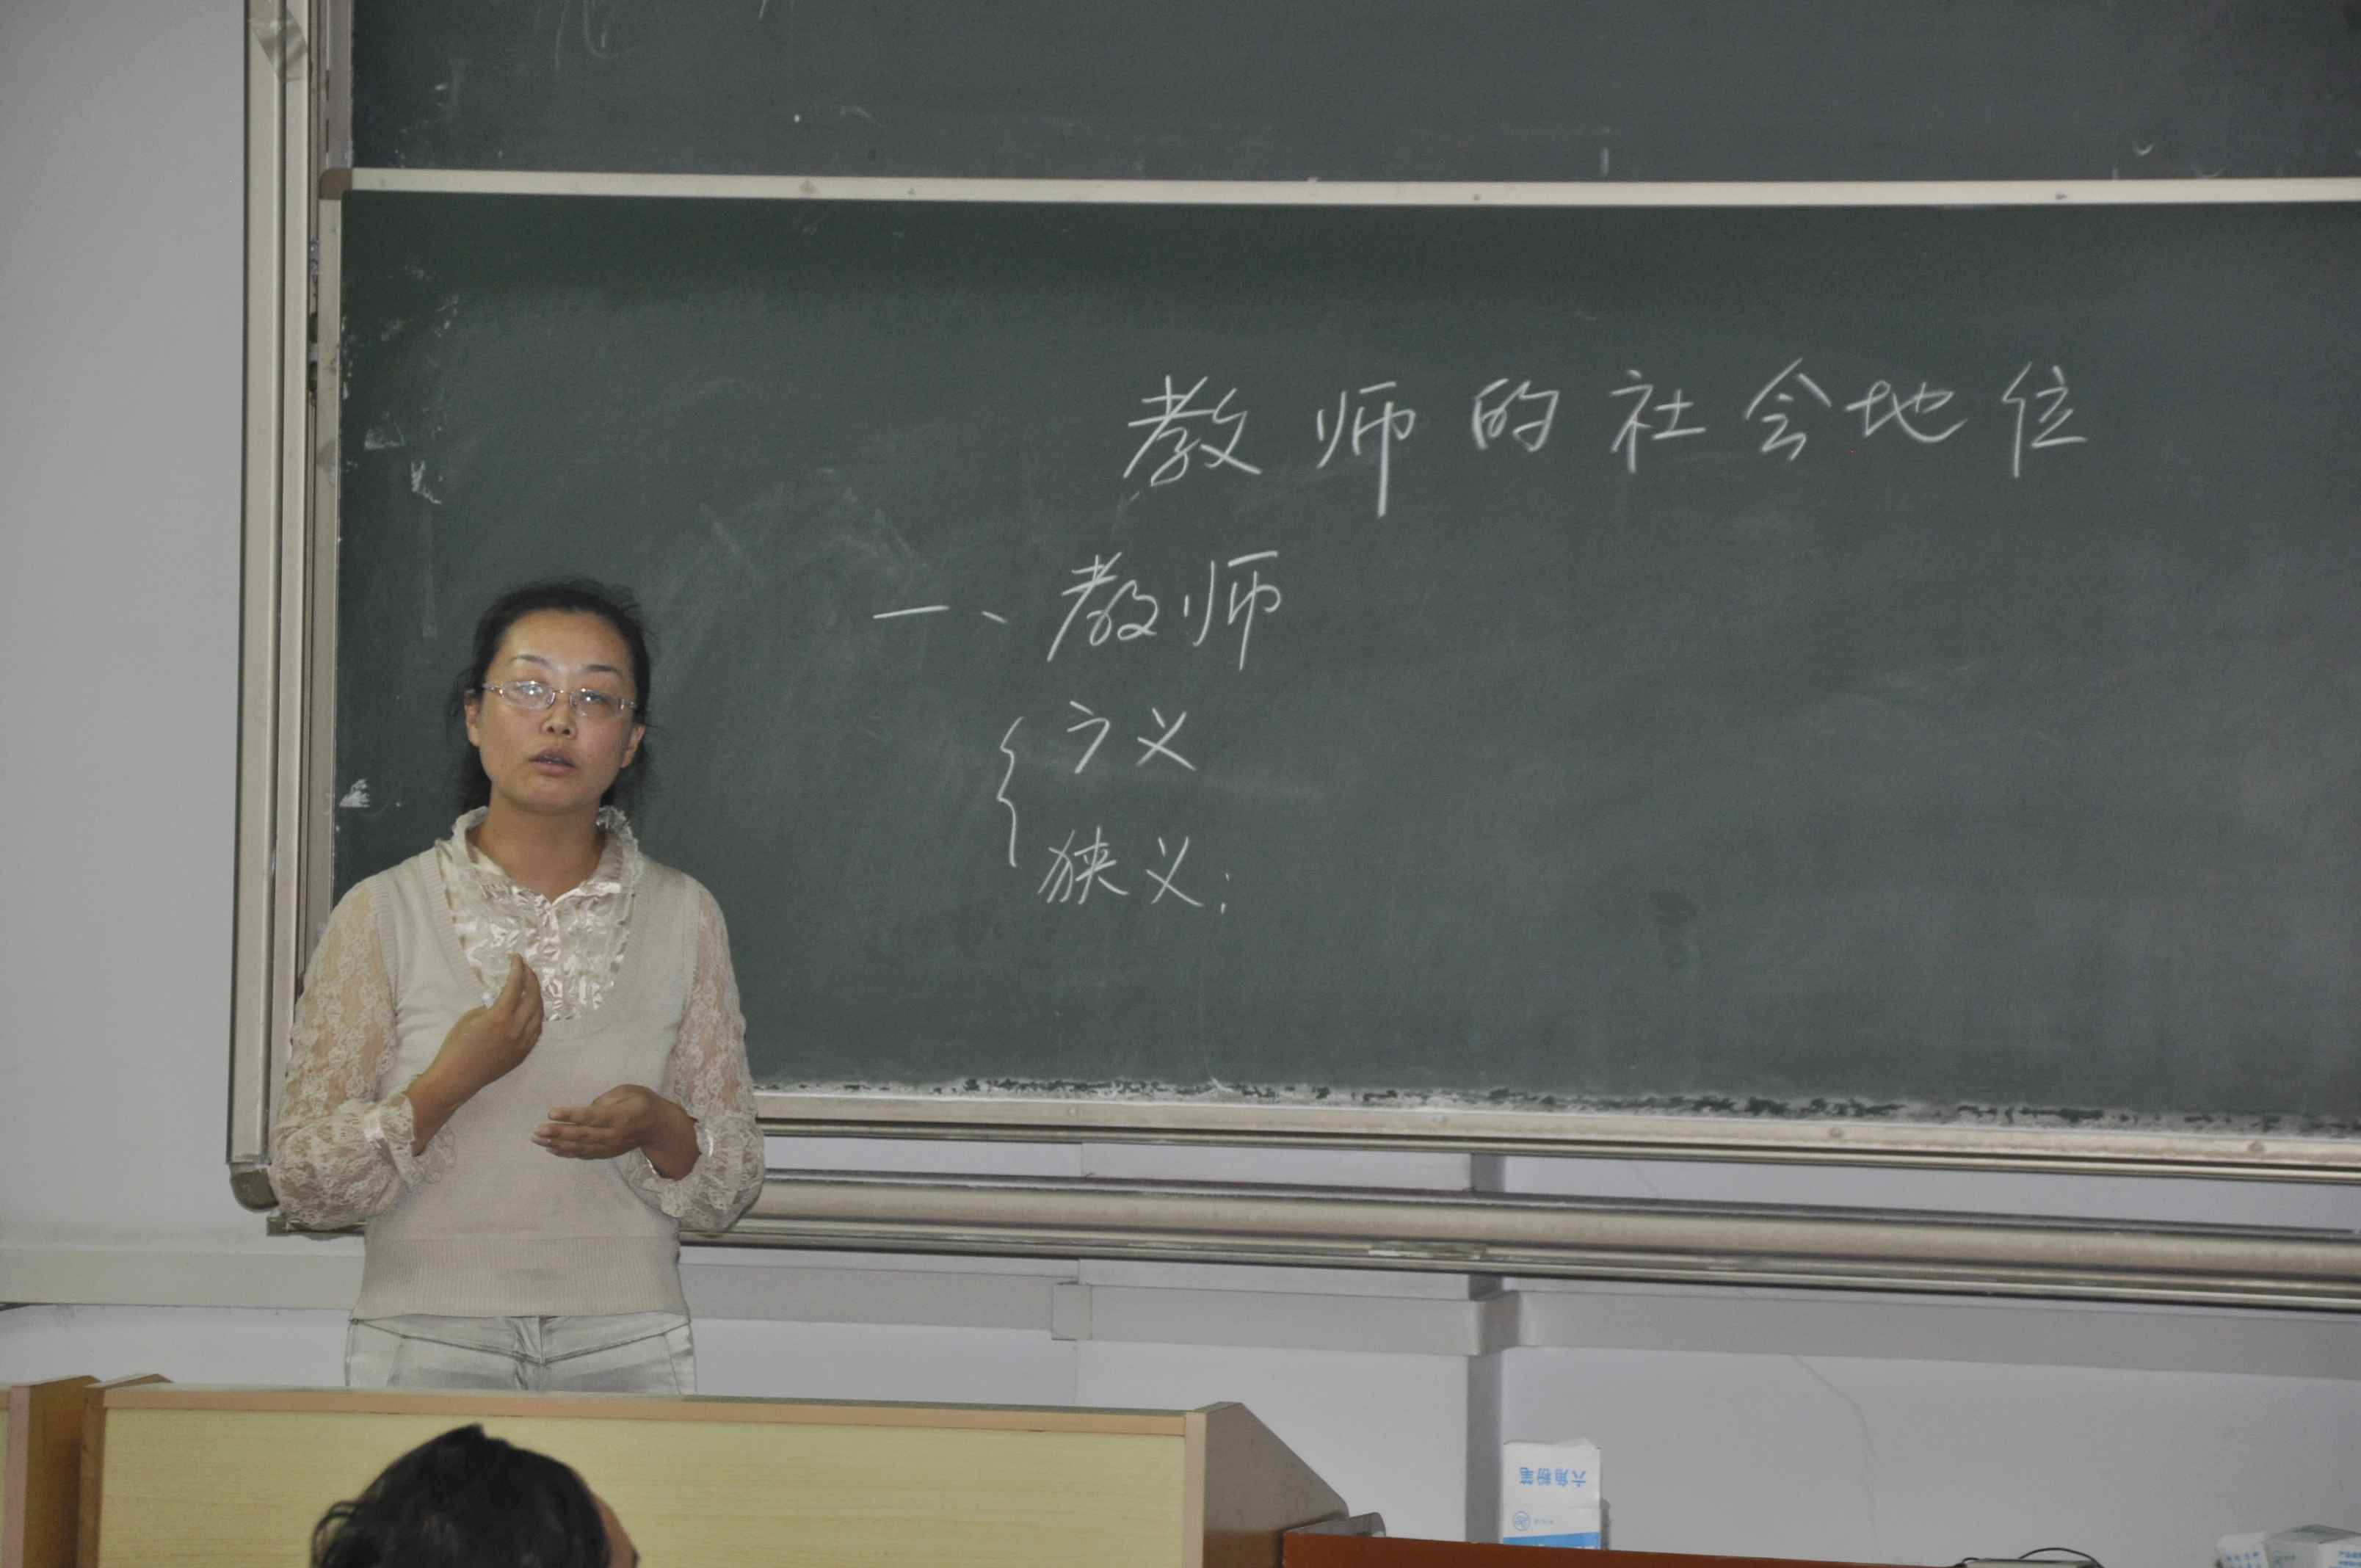 教师的社会地位
一、教师
广义
狭义:
六角粉笔